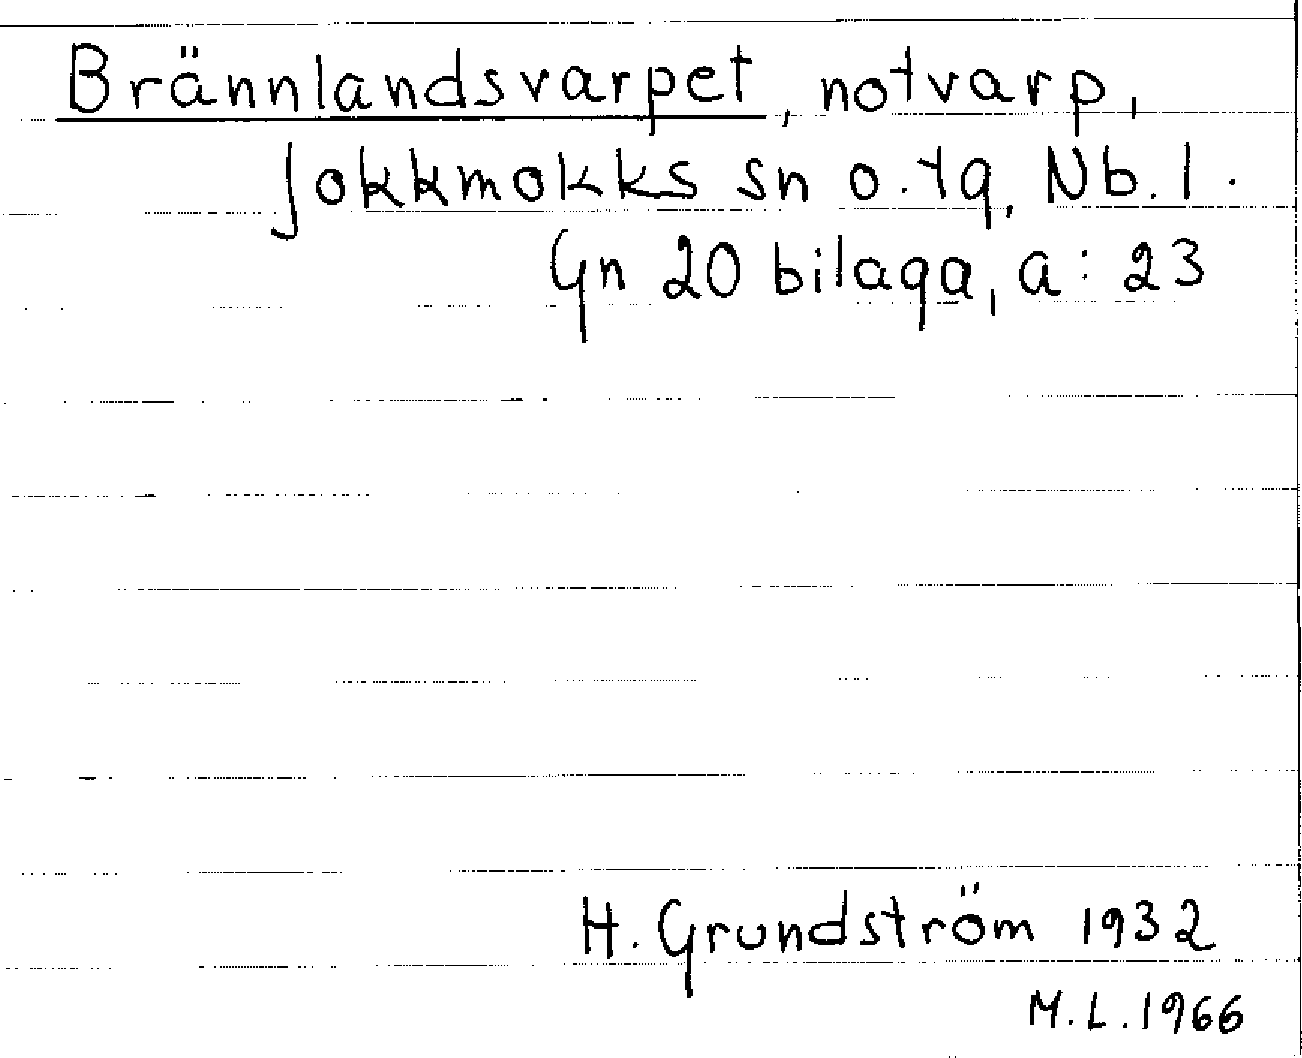 Brännlandsvarpet, notvarp,
Jokkmokks sn o. tg, Nb. l.
Gn 20 bilaga, a: 23
H. Grundström 1932
M.L. 1966